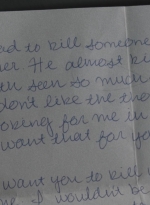 ad to kill someone
er. He almost ki
en seen so much
don't like the the
oking for me in
want that for yo
want you to kill
me. I wouldn't be